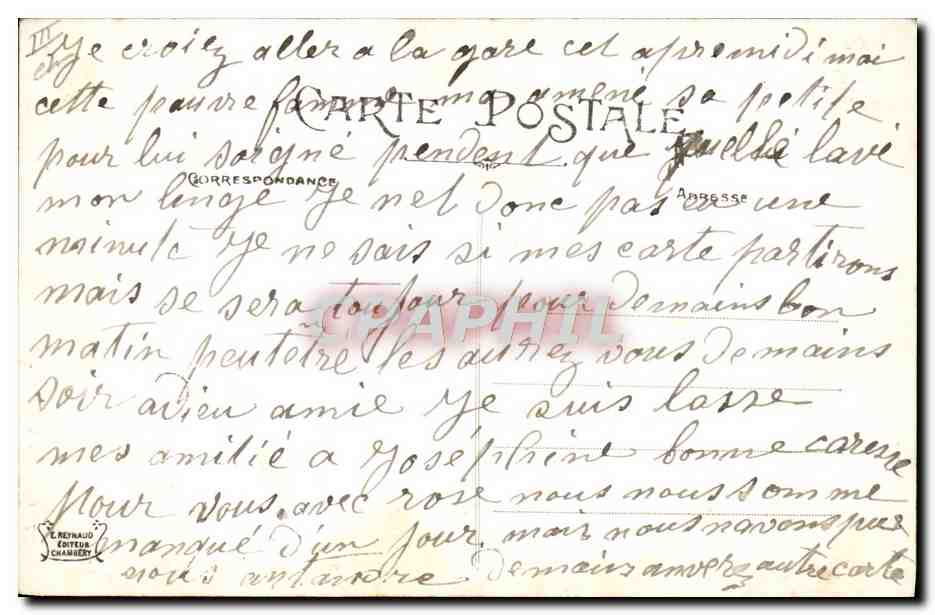 III
Je croiez aller a la gare cet apremidi mai
cette pauvre famme ma amené sa petite
CARTE POSTALE
pour lui soigné pendent que quellé lavé
CORRESPONDANCE
ADRESSE
mon linge Je net donc pas eu une
minute Je ne sais si mes carte partirons
mais se sera toujour pour demains bon
CPAPHIL
matin peutetre les aurez vous demains
soir adieu amie Je suis lasse
mes amitié a Joséphine bonne caresse
Pour vous avec rose nous nous somme
manqué d'un jour mais nous navons pus
E. REYNAUD
EDITEUR
CHAMBERY
nous antandre demains anverz autre carte